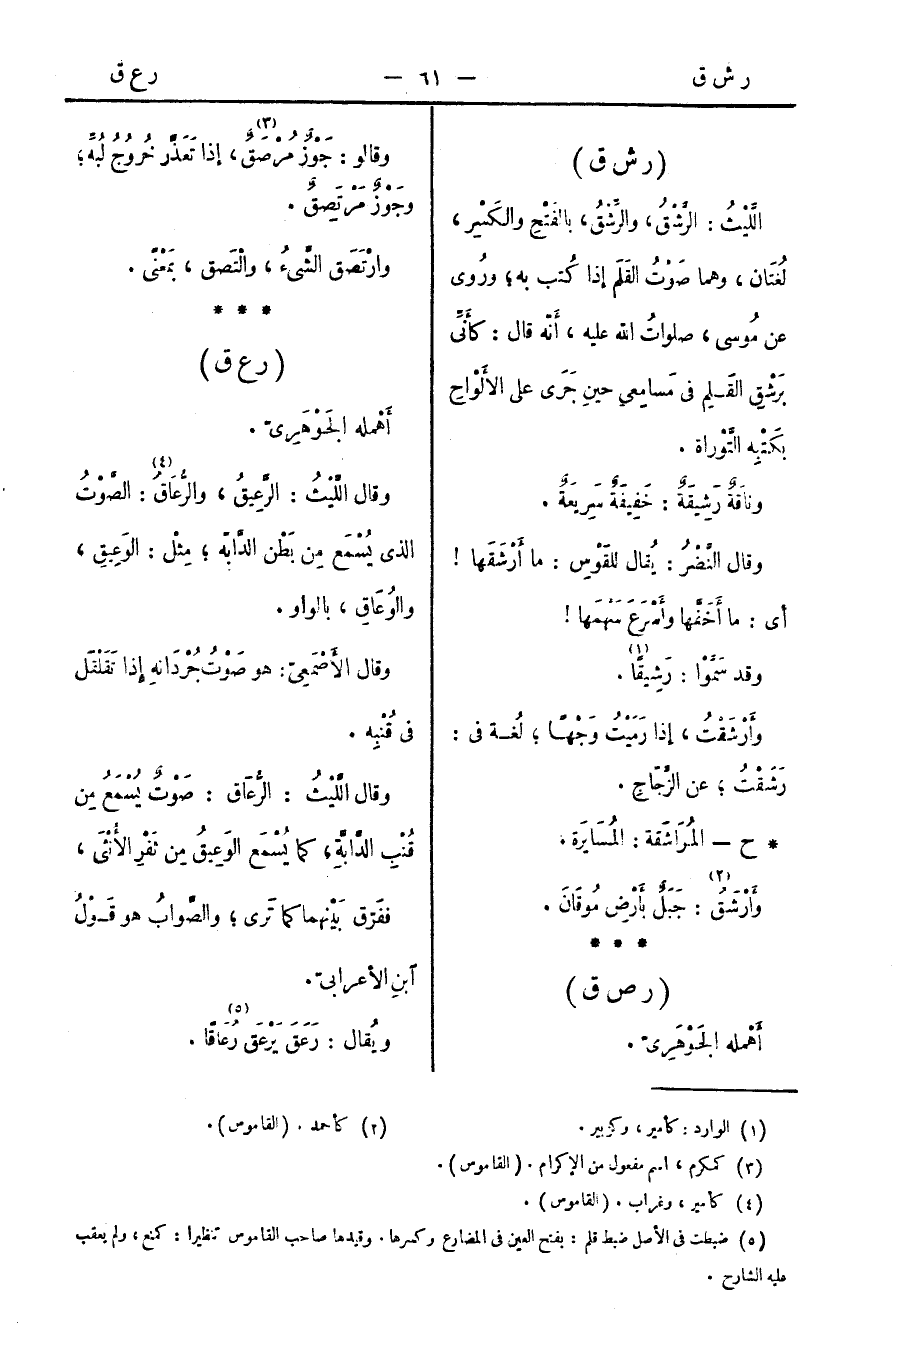 ر ش ق
— ٦١ —
ر ع ق
( ر ش ق )
اللَّيْثُ : الرَّشْقُ، والرِّشْقُ، بالفَتْحِ والكَسْرِ،
لُغَتَان، وهما صَوْتُ القَلَمِ إذا كُتب به؛ ورُوى
عن مُوسى، صلواتُ الله عليه، أنّه قال : كأَنِّى
بَرشْقِ القَـلمِ فى مَسامِعي حين جَرَى على الألْواحِ
بكَتْبِه التَّوْراة .
وناقَةٌ رَشِيقَةٌ : خَفِيفَةٌ سَرِيعَةٌ .
وقال النَّضْرُ : يُقال للقَوْسِ : ما أَرْشَقَها !
أى : ما أَخَفَّها وأَسْرَعَ سَهْمَها !
وقد سَمَّوْا : رَشِيقًا (١) .
وأَرْشَقْتُ، إذا رَمَيْتُ وَجْهًـا ؛ لُغـة فى :
رَشَقْتُ ؛ عن الزَّجّاجِ .
* ح — المُرَاشَقة : المُسَايَرة .
وأَرْشَقُ (٢) : جَبَلٌ بأَرْضِ مُوقَانَ .
* * *
( ر ص ق )
أَهْمله الجَوْهَرِىّ .
وقالو : جَوْزٌ مُرْصَقٌ (٣)، إذا تَعَذَّر خُرُوجُ لُبِّه؛
وجَوْزٌ مُرْتَصِقٌ .
وارْتَصَق الشَّىءُ، والْتَصق، بمَعْنًى .
* * *
( ر ع ق )
أَهْمله الجَوْهَرِىّ .
وقال اللَّيْثُ : الرَّعِيقُ، والرُّعَاقُ (٤) : الصَّوْتُ
الذى يُسْمَع مِن بَطْن الدَّابّه ؛ مِثْل : الوَعِيقِ،
والوُعَاقِ، بالواو .
وقال الأَصْمَعِىّ : هو صَوْتُ جُرْدَانِه إذا تَقَلْقَل
فى قُنْبِه .
وقال اللَّيْثُ : الرُّعَاق : صَوْتٌ يُسْمَعُ مِن
قُنْبِ الدَّابَّةِ؛ كما يُسْمَع الوَعِيقُ مِن ثَفْرِ الأُنْثَى،
ففَرَق بَيْنهما كما تَرى ؛ والصَّوابُ هو قَـوْلُ
آبنِ الأعرابىّ .
ويُقال : رَعَقَ يَرْعَق رُعَاقًا (٥) .
(١) الوارد : كأمير، وكزبير .
(٢) كأحمد . (القاموس) .
(٣) كمكرم، اسم مفعول من الإكرام . (القاموس) .
(٤) كأمير، وغراب . (القاموس) .
(٥) ضبطت فى الأصل ضبط قلم : بفتح العين فى المضارع وكسرها . وقيدها صاحب القاموس تنظيرا : كمنع، ولم يعقب
عليه الشارح .